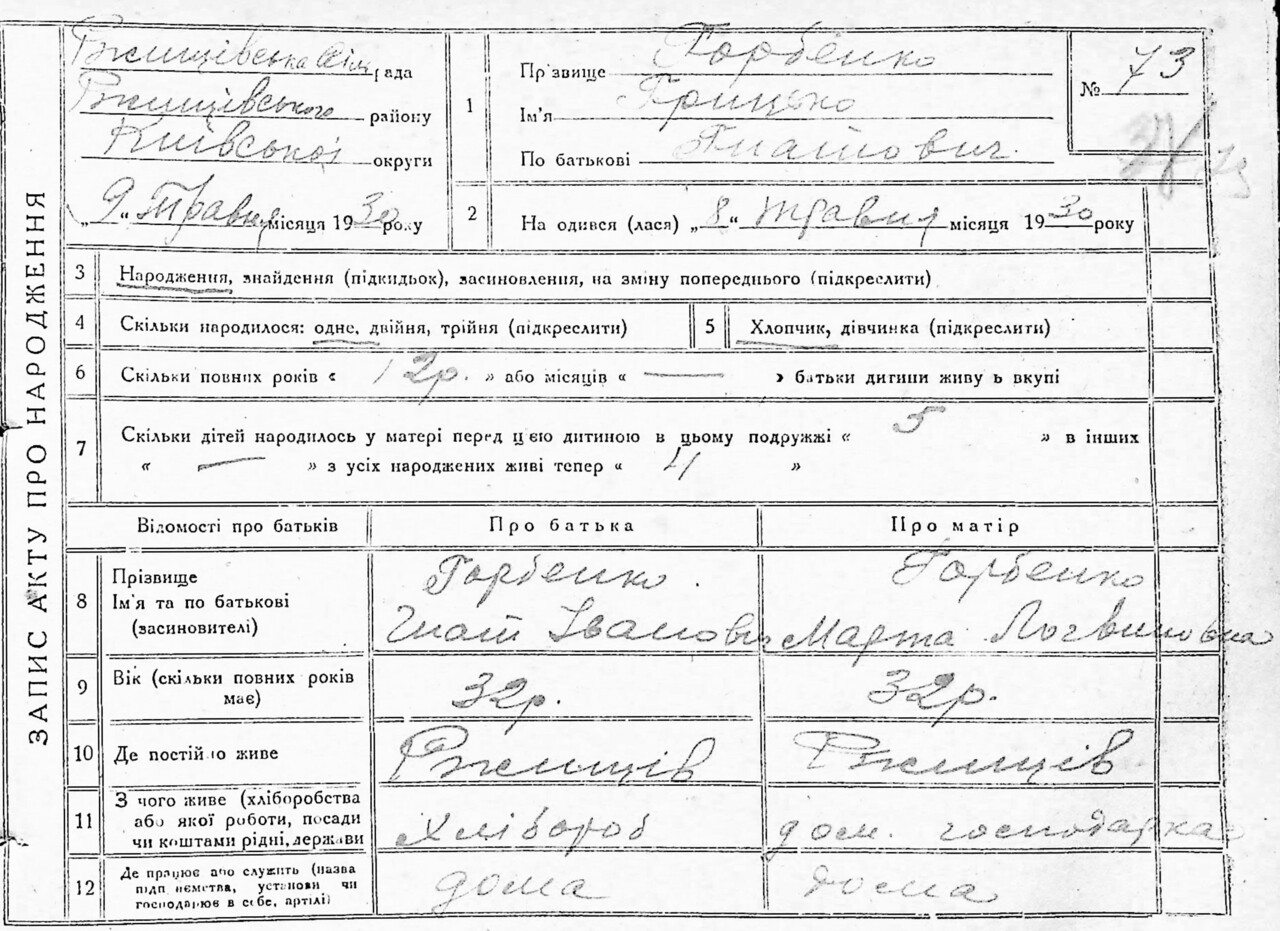 ЗАПИС АКТУ ПРО НАРОДЖЕННЯ
Ржищівська Сільрада
Ржищівського району
Київської округи
„9“ Травня місяця 1930 року
1
Прізвище Горбенко
Ім'я Грицько
По батькові Гнатович
№ 73
2
На одився (лася) „8“ травня місяця 1930 року
3 Народження, знайдення (підкидьок), засиновлення, на зміну попереднього (підкреслити)
4 Скільки народилося: одне, двійня, трійня (підкреслити)
5 Хлопчик, дівчинка (підкреслити)
6 Скільки повних років « 12р. » або місяців « — » батьки дитини живу ь вкупі
7 Скільки дітей народилось у матері перед цією дитиною в цьому подружжі « 5 » в інших
« — » з усіх народжених живі тепер « 4 »
Відомості про батьків Про батька Про матір
8 Прізвище Горбенко Горбенко
Ім'я та по батькові Гнат Іванович Марта Логвиновна
(засиновителі)
9 Вік (скільки повних років 32р. 32р.
має)
10 Де постійно живе Ржищів Ржищів
11 З чого живе (хліборобства
або якої роботи, посади Хлібороб дом. господарка
чи коштами рідні, держави
12 Де працює або служить (назва
підп иємства, установи чи дома дома
господарює в себе, артілі)